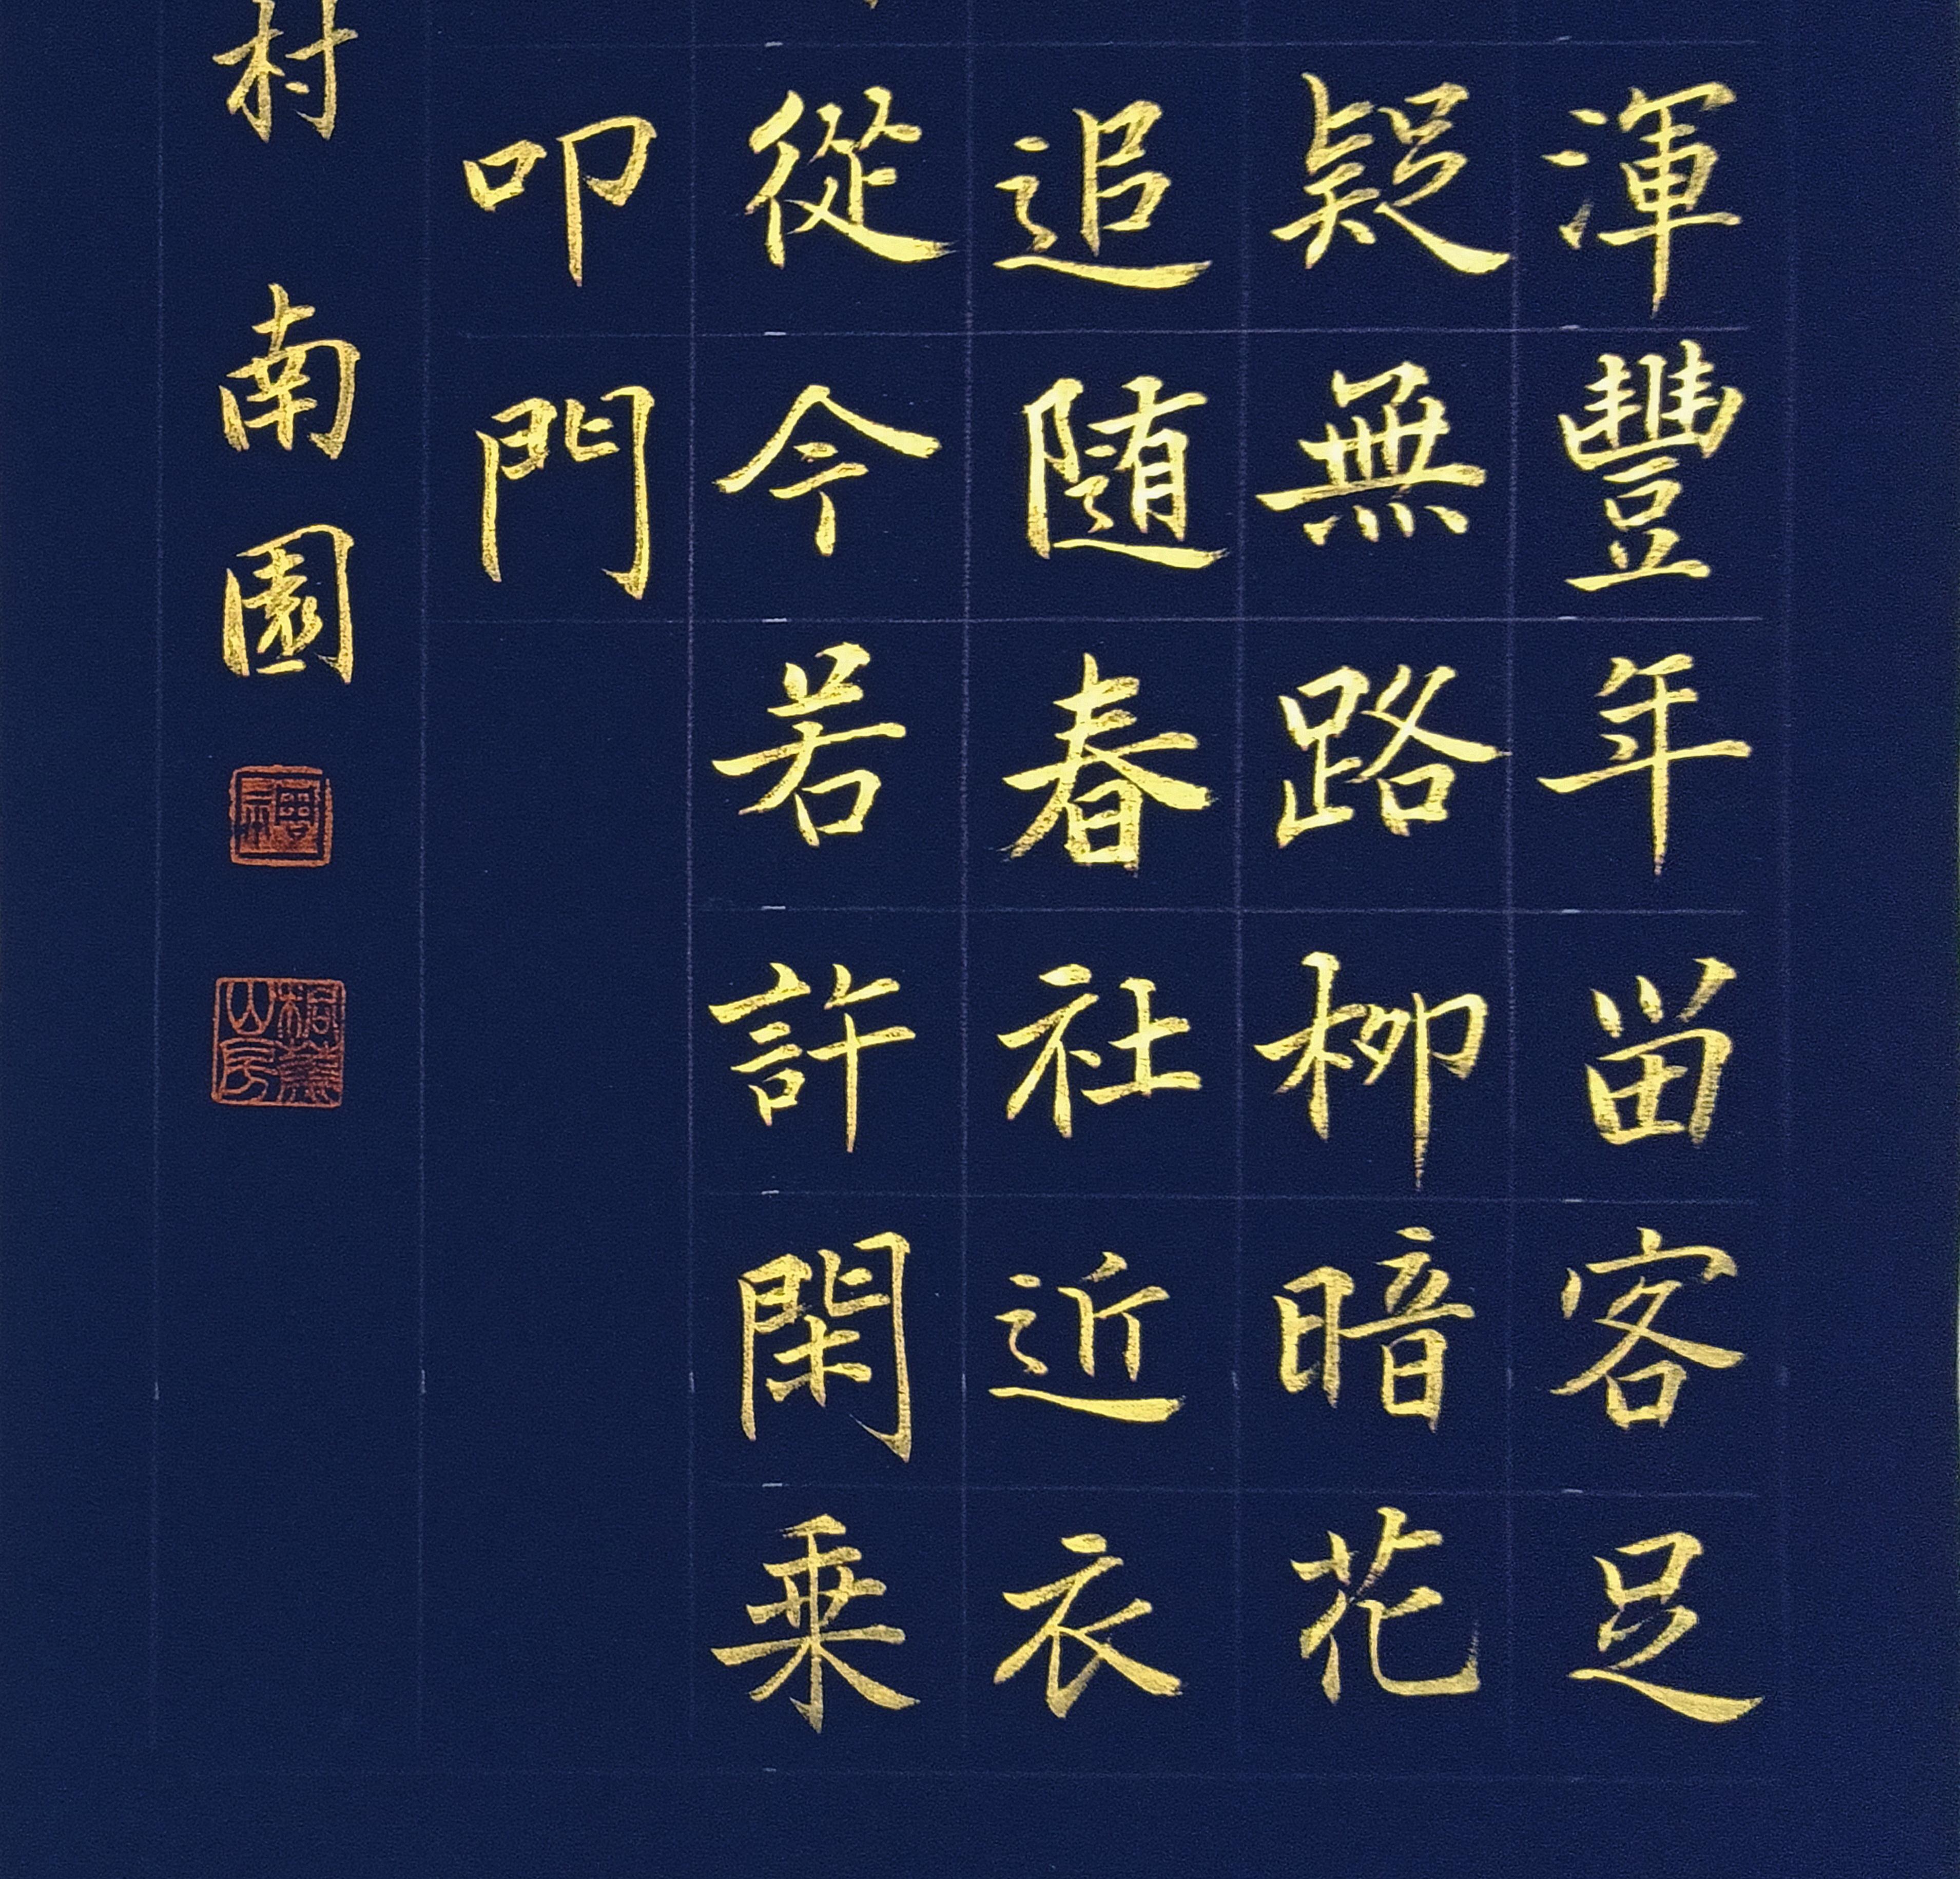 渾豐年畱客足
疑無路柳暗花
追隨春社近衣
從今若許閑乗
叩門
村 南園
桐蔭山房